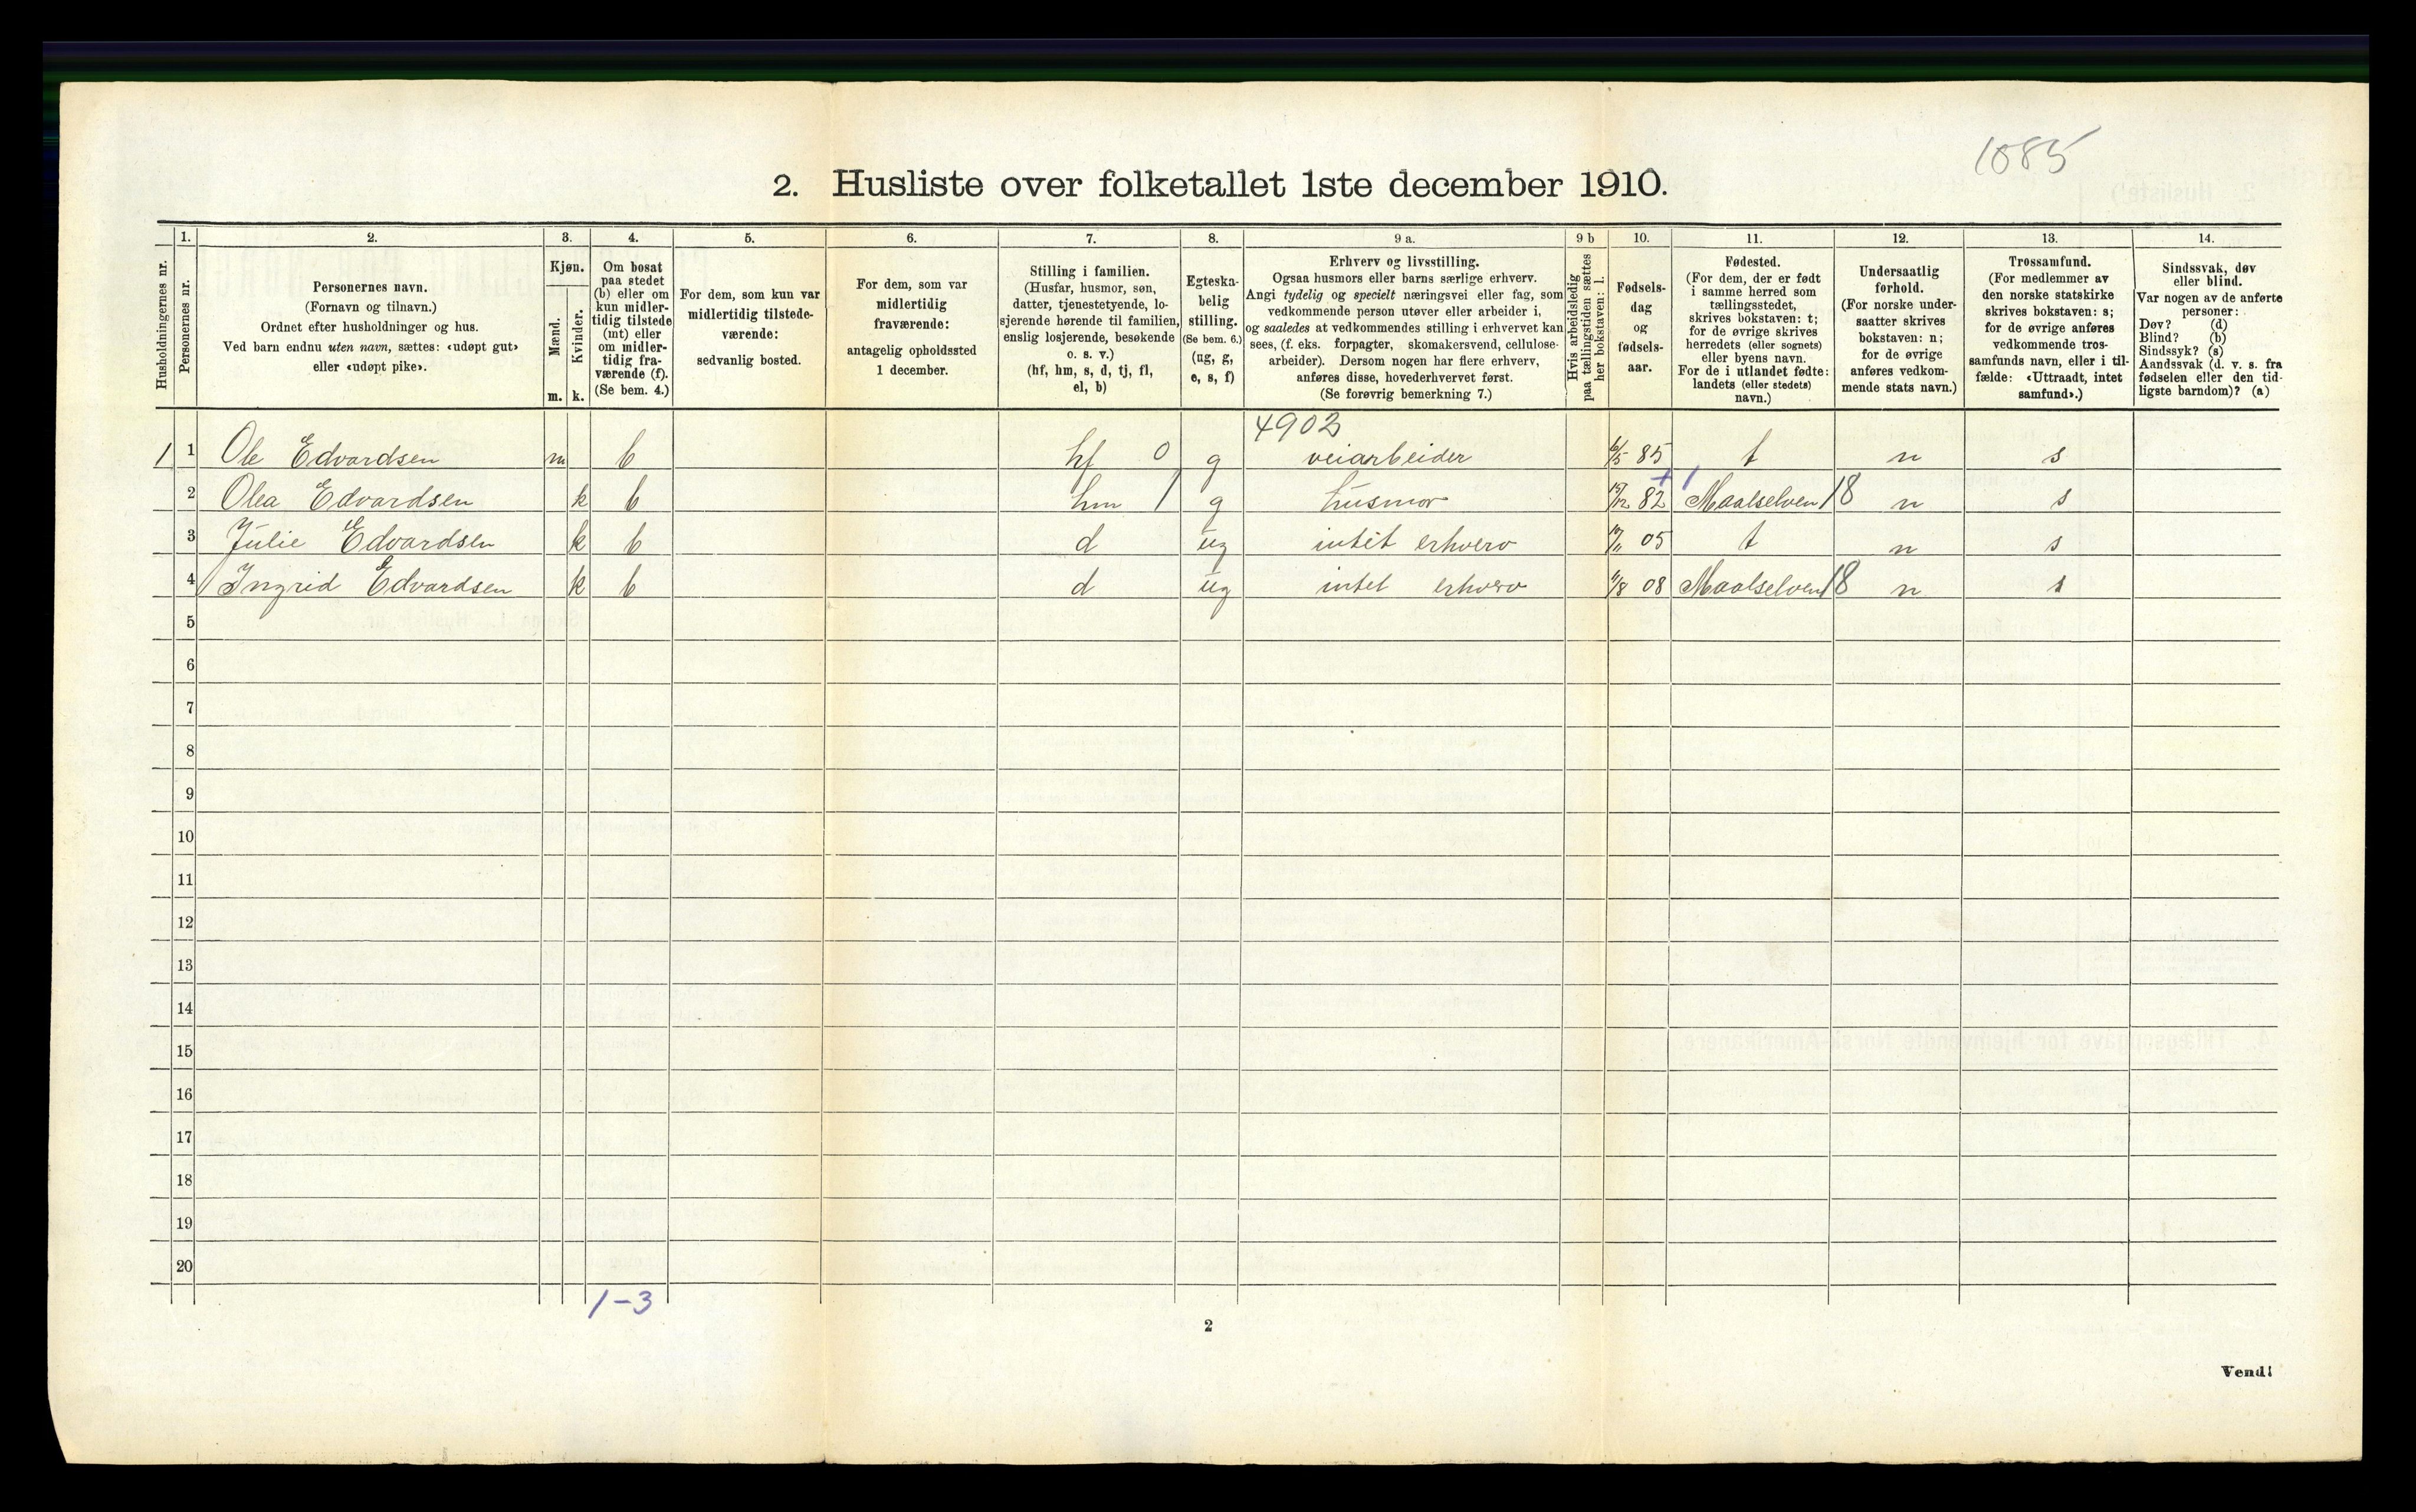 1085
2. Husliste over folketallet 1ste december 1910.
Husholdningernes nr.
1. Personernes nr.
2. Personernes navn.
(Fornavn og tilnavn.)
Ordnet efter husholdninger og hus.
Ved barn endnu uten navn, sættes: «udøpt gut»
eller «udøpt pike».
3. Kjøn.
Mænd. m.
Kvinder. k.
4. Om bosat
paa stedet
(b) eller om
kun midler-
tidig tilstede
(mt) eller
om midler-
tidig fra-
værende (f).
(Se bem. 4.)
5. For dem, som kun var
midlertidig tilstede-
værende:
sedvanlig bosted.
6. For dem, som var
midlertidig
fraværende:
antagelig opholdssted
1 december.
7. Stilling i familien.
(Husfar, husmor, søn,
datter, tjenestetyende, lo-
sjerende hørende til familien,
enslig losjerende, besøkende
o. s. v.)
(hf, hm, s, d, tj, fl,
el, b)
8. Egteska-
belig
stilling.
(Se bem. 6.)
(ug, g,
e, s, f)
9 a. Erhverv og livsstilling.
Ogsaa husmors eller barns særlige erhverv.
Angi tydelig og specielt næringsvei eller fag, som
vedkommende person utøver eller arbeider i,
og saaledes at vedkommendes stilling i erhvervet kan
sees, (f. eks. forpagter, skomakersvend, cellulose-
arbeider). Dersom nogen har flere erhverv,
anføres disse, hovederhvervet først.
(Se forøvrig bemerkning 7.)
9 b Hvis arbeidsledig
paa tællingstiden sættes
her bokstaven: l.
10. Fødsels-
dag
og
fødsels-
aar.
11. Fødested.
(For dem, der er født
i samme herred som
tællingsstedet,
skrives bokstaven: t;
for de øvrige skrives
herredets (eller sognets)
eller byens navn.
For de i utlandet fødte:
landets (eller stedets)
navn.)
12. Undersaatlig
forhold.
(For norske under-
saatter skrives
bokstaven: n;
for de øvrige
anføres vedkom-
mende stats navn.)
13. Trossamfund.
(For medlemmer av
den norske statskirke
skrives bokstaven: s;
for de øvrige anføres
vedkommende tros-
samfunds navn, eller i til-
fælde: «Uttraadt, intet
samfund».)
14. Sindssvak, døv
eller blind.
Var nogen av de anførte
personer:
Døv? (d)
Blind? (b)
Sindssyk? (s)
Aandssvak (d. v. s. fra
fødselen eller den tid-
ligste barndom)? (a)
4902
1 1 Ole Edvardsen m b hf 0 g veiarbeider 6/5 85 t n s
2 Olea Edvardsen k b hm 1 g husmor 15/12 82 Maalselven 18 n s
3 Julie Edvardsen k b d ug intet erhverv 05 t n s
4 Ingrid Edvardsen k b d ug intet erhverv 08 Maalselven 18 n s
5
6
7
8
9
10
11
12
13
14
15
16
17
18
19
20
1-3
2
Vend!